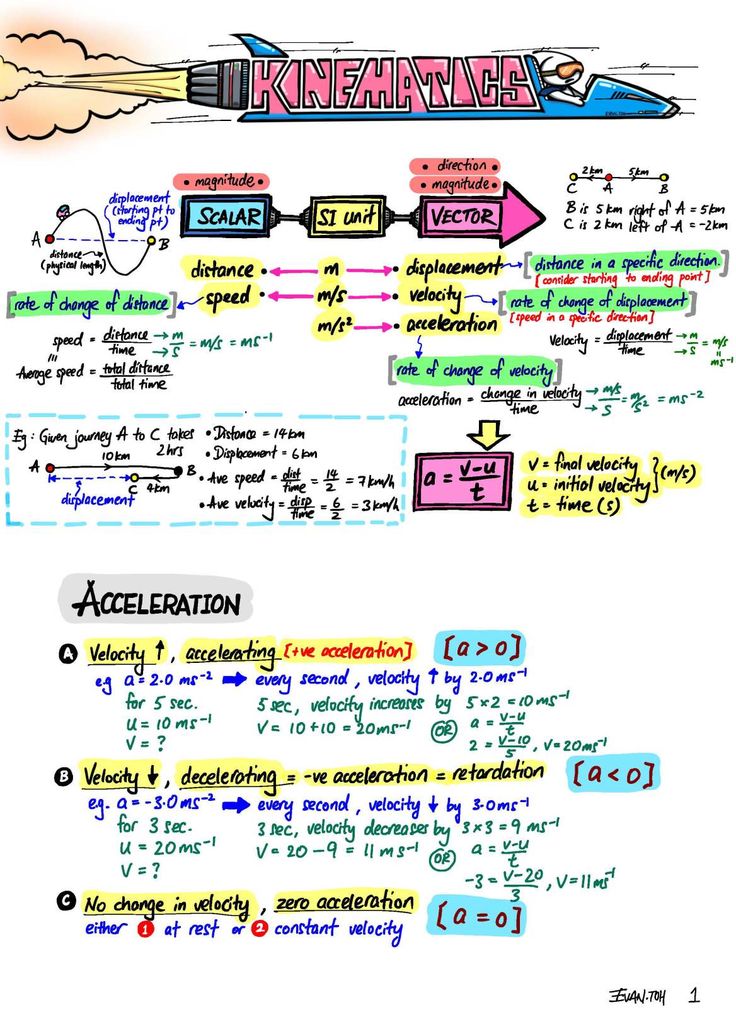 KINEMATICS
• magnitude •
• direction •
• magnitude •
SCALAR
SI unit
VECTOR
2km 5km
C A B
B is 5km right of A = 5km
C is 2km left of A = -2km
displacement
(starting pt to
ending pt)
A B
distance
(physical length)
distance • m • displacement
[distance in a specific direction.]
[consider starting to ending point]
[rate of change of distance]
speed • m/s • velocity
[rate of change of displacement]
[speed in a specific direction]
m/s² • acceleration
speed = distance/time → m/→ s = m/s = ms⁻¹
=
Average speed = total distance/total time
Velocity = displacement/time → m/→ s = m/s = ms⁻¹
[rate of change of velocity]
acceleration = change in velocity/time → m/s/→ s = m/s² = ms⁻²
Eg: Given journey A to C takes
2hrs
10km
A B
C 4km
displacement
• Distance = 14km
• Displacement = 6km
• Ave speed = dist/time = 14/2 = 7km/h
• Ave velocity = disp/time = 6/2 = 3km/h
a = v-u/t
V = final velocity
u = initial velocity } (m/s)
t = time (s)
ACCELERATION
A Velocity ↑, accelerating [+ve acceleration] [a > 0]
e.g a = 2.0 ms⁻² ➡ every second, velocity ↑ by 2.0 ms⁻¹
for 5 sec. 5 sec, velocity increases by 5×2 = 10 ms⁻¹
u = 10 ms⁻¹ V = 10 + 10 = 20 ms⁻¹ OR a = v-u/t
V = ? 2 = v-10/5, V = 20 ms⁻¹
B Velocity ↓, decelerating = -ve acceleration = retardation [a < 0]
e.g. a = -3.0 ms⁻² ➡ every second, velocity ↓ by 3.0 ms⁻¹
for 3 sec. 3 sec, velocity decreases by 3×3 = 9 ms⁻¹
u = 20 ms⁻¹ V = 20 - 9 = 11 ms⁻¹ OR a = v-u/t
V = ? -3 = v-20/3, V = 11 ms⁻¹
C No change in velocity, zero acceleration [a = 0]
either 1 at rest or 2 constant velocity
EVAN.TOH 1